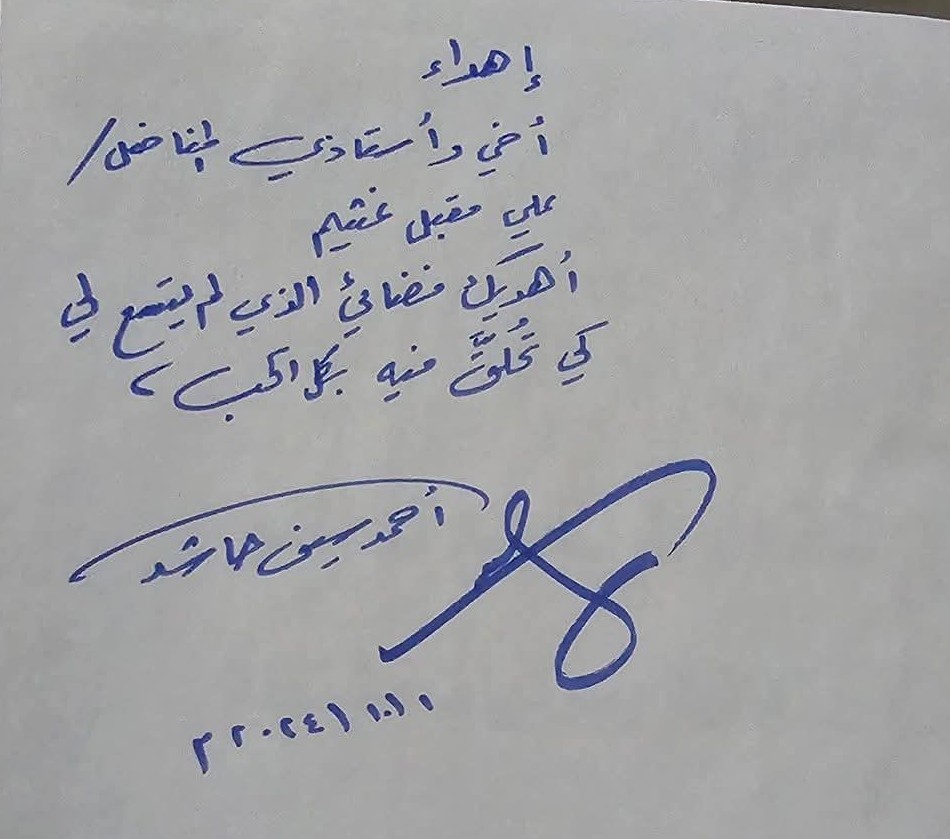 إهداء
أخي وأستاذي المناضل/
علي مقبل غثيم
أهديك فضائيْ الذي لم يتسع لي
كي تُحلِّقَ فيه بكل الحب،
أحمد سيف حاشد
١/١٠/٢٠٢٤م